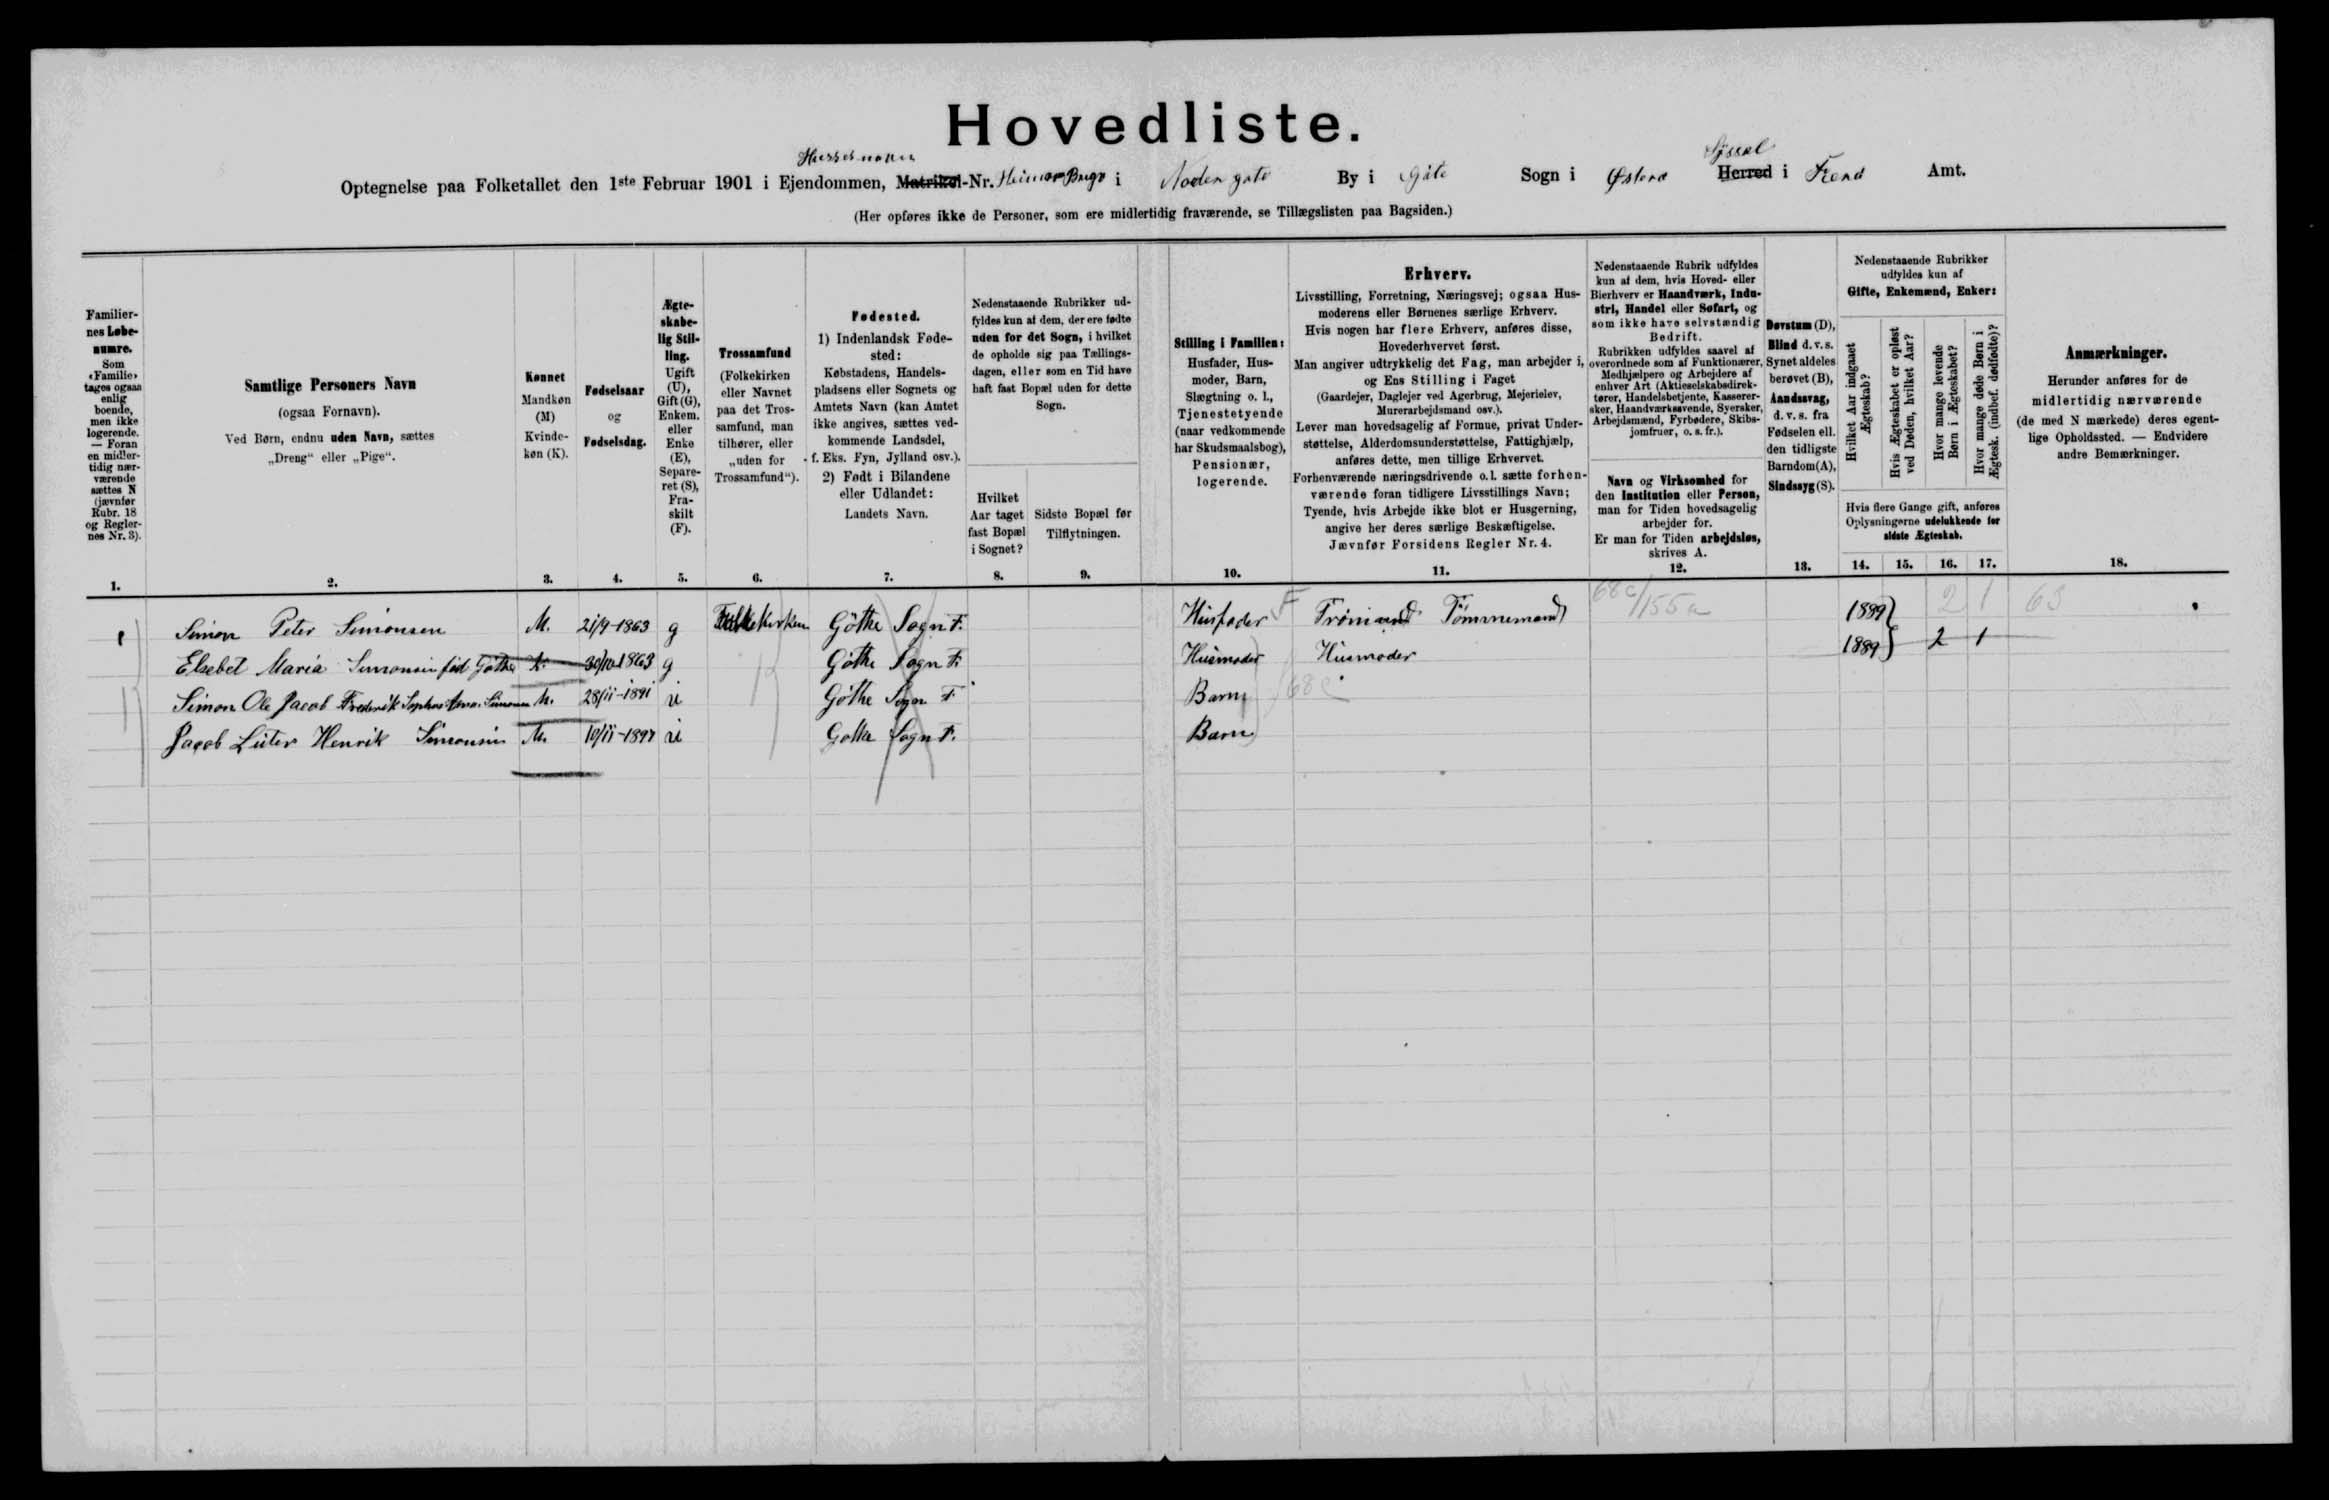 Hovedliste.
Optegnelse paa Folketallet den 1ste Februar 1901 i Ejendommen, Matrikel-Nr. i By i Gøte Sogn i Østerø Syssel Herred i Amt.
(Her opføres ikke de Personer, som ere midlertidig fraværende, se Tillægslisten paa Bagsiden.)
Familier-
nes Løbe-
numre.
Som
«Familie»
tages ogsaa
enlig
boende,
men ikke
logerende.
— Foran
en midler-
tidig nær-
værende
sættes N
(jævnfør
Rubr. 18
og Regler-
nes Nr. 3).
1.
Samtlige Personers Navn
(ogsaa Fornavn).
Ved Børn, endnu uden Navn, sættes
„Dreng“ eller „Pige“.
2.
Kønnet
Mandkøn
(M)
Kvinde-
køn (K).
3.
Fødselsaar
og
Fødselsdag.
4.
Ægte-
skabe-
lig Stil-
ling.
Ugift
(U),
Gift (G),
Enkem.
eller
Enke
(E),
Separe-
ret (S),
Fra-
skilt
(F).
5.
Trossamfund
(Folkekirken
eller Navnet
paa det Tros-
samfund, man
tilhører, eller
„uden for
Trossamfund“).
6.
Fødested.
1) Indenlandsk Føde-
sted:
Købstadens, Handels-
pladsens eller Sognets og
Amtets Navn (kan Amtet
ikke angives, sættes ved-
kommende Landsdel,
f. Eks. Fyn, Jylland osv.).
2) Født i Bilandene
eller Udlandet:
Landets Navn.
7.
Nedenstaaende Rubrikker ud-
fyldes kun af dem, der ere fødte
uden for det Sogn, i hvilket
de opholde sig paa Tællings-
dagen, eller som en Tid have
haft fast Bopæl uden for dette
Sogn.
Hvilket
Aar taget
fast Bopæl
i Sognet?
8.
Sidste Bopæl før
Tilflytningen.
9.
Stilling i Familien:
Husfader, Hus-
moder, Barn,
Slægtning o. l.,
Tjenestetyende
(naar vedkommende
har Skudsmaalsbog),
Pensionær,
logerende.
10.
Erhverv.
Livsstilling, Forretning, Næringsvej; ogsaa Hus-
moderens eller Børnenes særlige Erhverv.
Hvis nogen har flere Erhverv, anføres disse,
Hovederhvervet først.
Man angiver udtrykkelig det Fag, man arbejder i,
og Ens Stilling i Faget
(Gaardejer, Daglejer ved Agerbrug, Mejerielev,
Murerarbejdsmand osv.).
Lever man hovedsagelig af Formue, privat Under-
støttelse, Alderdomsunderstøttelse, Fattighjælp,
anføres dette, men tillige Erhvervet.
Forhenværende næringsdrivende o.l. sætte forhen-
værende foran tidligere Livsstillings Navn;
Tyende, hvis Arbejde ikke blot er Husgerning,
angive her deres særlige Beskæftigelse.
Jævnfør Forsidens Regler Nr. 4.
11.
Nedenstaaende Rubrik udfyldes
kun af dem, hvis Hoved- eller
Bierhverv er Haandværk, Indu-
stri, Handel eller Søfart, og
som ikke have selvstændig
Bedrift.
Rubrikken udfyldes saavel af
overordnede som af Funktionærer,
Medhjælpere og Arbejdere af
enhver Art (Aktieselskabsdirek-
tører, Handelsbetjente, Kasserer-
sker, Haandværkssvende, Syersker,
Arbejdsmænd, Fyrbødere, Skibs-
jomfruer, o. s. fr.).
Navn og Virksomhed for
den Institution eller Person,
man for Tiden hovedsagelig
arbejder for.
Er man for Tiden arbejdsløs,
skrives A.
12.
Døvstum (D),
Blind d. v. s.
Synet aldeles
berøvet (B),
Aandssvag,
d. v. s. fra
Fødselen ell.
den tidligste
Barndom(A),
Sindssyg (S).
13.
Nedenstaaende Rubrikker
udfyldes kun af
Gifte, Enkemænd, Enker:
Hvilket Aar indgaaet
Ægteskab?
Hvis Ægteskabet er opløst
ved Døden, hvilket Aar?
Hvor mange levende
Børn i Ægteskabet?
Hvor mange døde Børn i
Ægtesk. (indbef. dødfødte)?
Hvis flere Gange gift, anføres
Oplysningerne udelukkende for
sidste Ægteskab.
14. 15. 16. 17.
Anmærkninger.
Herunder anføres for de
midlertidig nærværende
(de med N mærkede) deres egent-
lige Opholdssted. — Endvidere
andre Bemærkninger.
18.
1 Simon Peter Simonsen M. 21/9-1863 g Folkekirken Göthe Sogn F. Husfader F Tömmermand 68c/155a 1889 2 1 63
Elsebet Maria Simonsen föd Göthe K. 30/10-1863 g Göthe Sogn F. Husmoder Husmoder 1889 2 1
Simon Ole Jacob Frederik Simonsen M. 28/11-1891 u Göthe Sogn F. Barn 68c
Jacob Henrik Simonsen M. u Gothe Sogn F. Barn